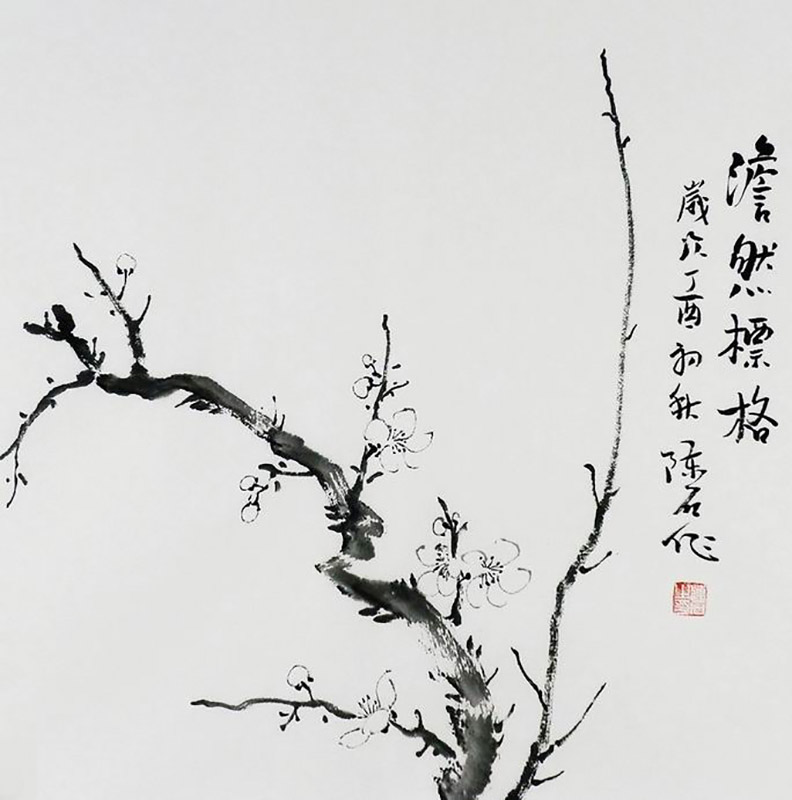 澹然標格
歲次丁酉初秋陈石作